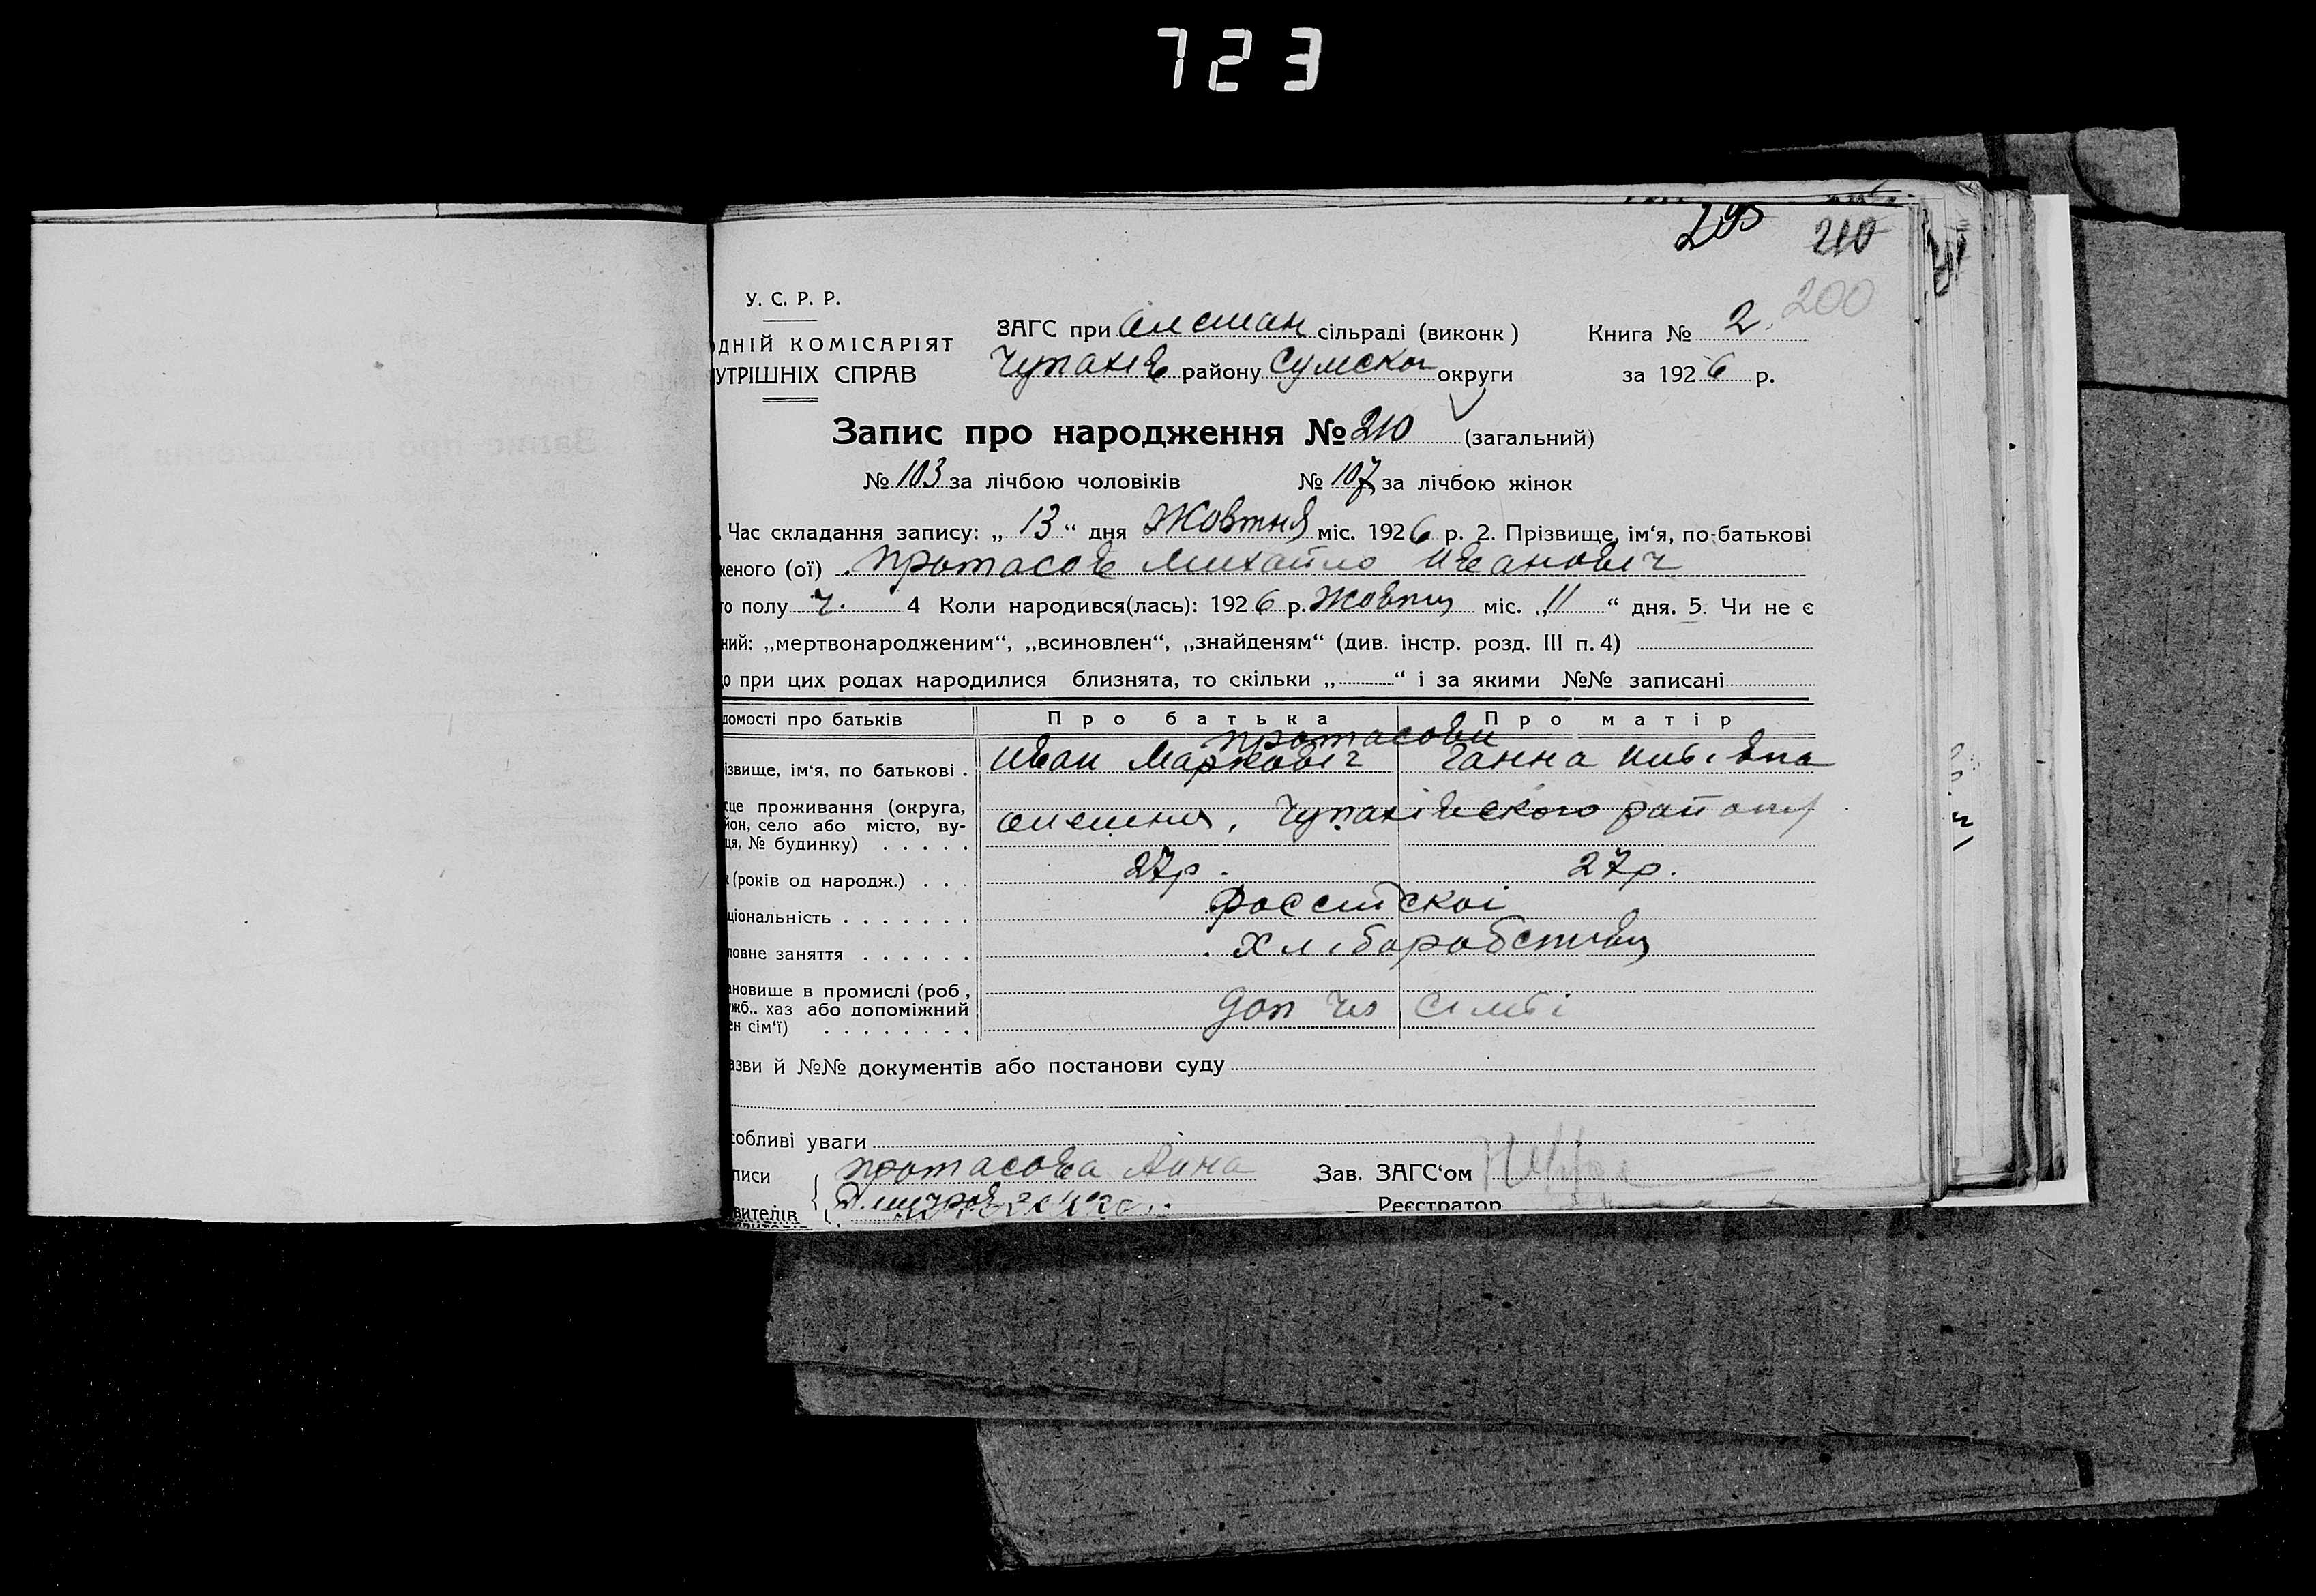 723
295 210
200
У. С. Р. Р.
ОДНІЙ КОМІСАРІЯТ
УТРІШНІХ СПРАВ
ЗАГС при сільраді (виконк)
Чупахів району Сумської округи
Книга № 2.
за 1926 р.
Запис про народження № 210 (загальний)
№ 103 за лічбою чоловіків № 107 за лічбою жінок
Час складання запису: „13“ дня Жовтня міс. 1926 р. 2. Прізвище, ім‘я, по-батькові
женого (ої) Протасов Михайло Иванович
го полу ч. 4 Коли народився(лась): 1926 р. Жовтня міс. „11“ дня. 5. Чи не є
ний: „мертвонародженим“, „всиновлен“, „знайденям“ (див. інстр. розд. III п. 4)
о при цих родах народилися близнята, то скільки „ “ і за якими №№ записані
домості про батьків Про батька Про матір
Протасови
ізвище, ім‘я, по батькові . Иван Маркович Ганна
сце проживання (округа,
йон, село або місто, ву-
ця, № будинку) . . . . . Чупахівского району
(років од народж.) . . . 27 р. 27 р.
ціональність . . . . . . . россійскоі
ловне заняття . . . . . . Хліборобство
ановище в промислі (роб,
ужб.. хаз або допоміжний
ен сім‘ї) . . . . . . . . доп чл сімьі
азви й №№ документів або постанови суду
собливі уваги
писи Протасова Анна Зав. ЗАГС‘ом
вителів Реєстратор